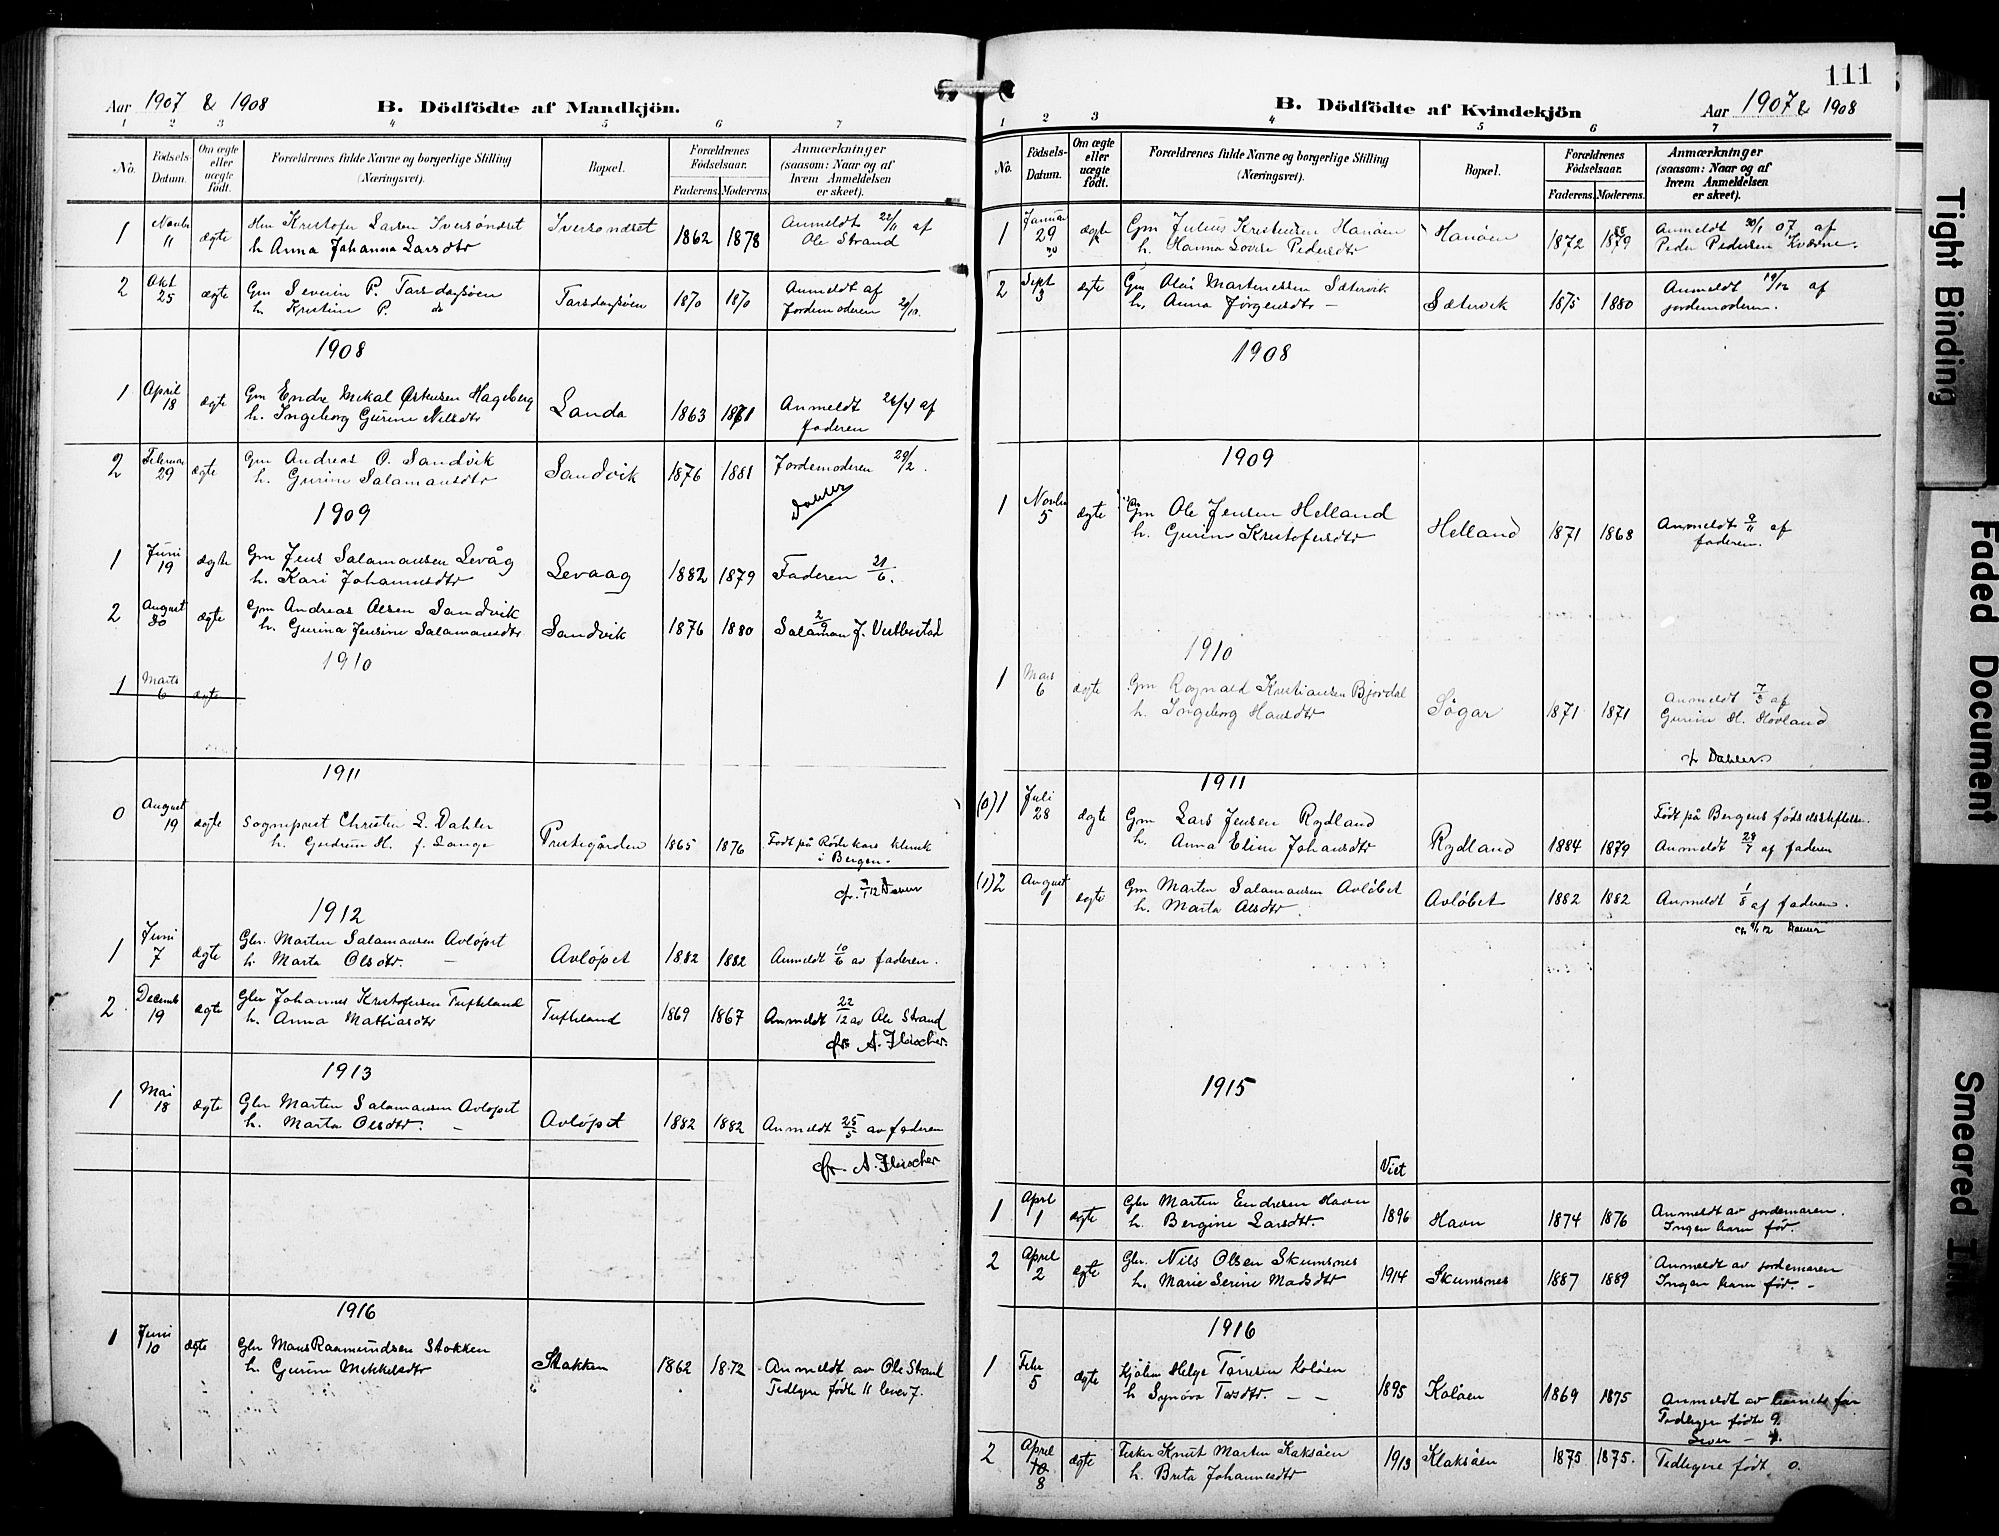 Aar 1907 & 1908 B. Dödfödte af Mandkjön.
1 2 3 4 5 6 7
No. Födsels-Datum. Om ægte eller uægte født. Forældrenes fulde Navne og borgerlige Stilling (Næringsvei). Bopæl. Forældrenes Födselsaar. Faderens. Moderens. Anmærkninger (saasom: Naar og af hvem Anmeldelsen er skeet).
1 Novbr 11 ægte Gm Kristofer Larsen Iversöndret Iversöndret 1862 1878 Anmeldt 22/11 af
h. Anna Johanna Larsdtr Ole Strand
2 Okt 25 ægte Gm Severin P. Tarsdagsöen Tarsdagsöen 1870 1870 Anmeldt af
h. Kristine P. do Jordemoderen
1908
1 April 18 ægte Gm Endre Mikal Østensen Hageberg Landa 1863 1871 Anmeldt 26/4 af
h. Ingeborg Gurine Nilsdtr faderen
2 Februar 29 ægte Gm Andreas O. Sandvik Sandvik 1876 1881 Jordemoderen 29/2.
h. Gurine Salamonsdtr
Dahler
1909
1 Juni 19 ægte Gm Jens Salamonsen Levåg Levaag 1882 1879 Faderen 21/6.
h. Kari Johannesdtr
2 August 30 ægte Gm Andreas Olsen Sandvik Sandvik 1876 1880 2/9
h. Gurina Jensine Salamonsdtr Salamon J. Vestbøstad
1910
1 Marts 6 ægte
1911
0 August 19 ægte Sogneprest Christen L. Dahler Prestegården 1865 1876 Født på Røde kors klinik
h. Gudrun H. f. Lange i Bergen.
1912
1 Juni 7 ægte Gbr. Marten Salamonsen Avlöpet Avlöpet 1882 1882 Anmeldt 10/6 av faderen.
h. Marta Olsdtr. –
2 Decemb 19 ægte Gbr Johannes Kristofersen Tufteland Tufteland 1869 1867 Anmeldt 22/12 av Ole Strand
h. Anna Mattiasdtr
fr. A. Fleischer.
1913
1 Mai 18 ægte Gbr Marten Salamonsen Avlöpet Avlöpet 1882 1882 Anmeldt 25/5 av faderen
h. Marta Olsdtr. –
fr. A. Fleischer
1916
1 Juni 10 ægte Gbr Mons Raamundsen Stokken Stokken 1862 1872 Anmeldt av Ole Strand
h. Gurine Mikkelsdtr Tidligere födte 11 lever 7.
111
B. Dödfödte af Kvindekjön Aar 1907 & 1908
1 2 3 4 5 6 7
No. Födsels-Datum. Om ægte eller uægte født. Forældrenes fulde Navne og borgerlige Stilling (Næringsvei). Bopæl. Forældrenes Födselsaar. Faderens. Moderens. Anmærkninger (saasom: Naar og af hvem Anmeldelsen er skeet).
1 Januar 29 ægte Gm Julius Kristensen Hanöen Hanöen 1872 1879 Anmeldt 30/1 07 af
h. Hanna Lovise Pedersdtr Peder Pedersen Kværne.
2 Sept 3 ægte Gm Olai Martinessen Sætervik Sætervik 1875 1880 Anmeldt 19/12 af
h. Anna Jørgensdtr – jordemoderen.
1908
1909
1 Novbr 5 ægte Gm Ole Jensen Helland Helland 1871 1868 Anmeldt 9/11 af
h. Gurine Kristofersdtr faderen.
1910
1 Mars 6 ægte Gm Rognald Kristiansen Bjordal Sögar 1871 1871 Anmeldt 7/3 af
h. Ingeborg Hansdtr Gurine H. Hovland
Dahler.
1911
(0) 1 Juli 28 ægte Gm Lars Jensen Rydland Rydland 1884 1879 Født på Bergens fødselsstiftelse.
h. Anna Eline Johansdtr Anmeldt 29/7 af faderen
(1) 2 August 1 ægte Gm Marten Salamonsen Avlöbet Avlöbet 1882 1882 Anmeldt 1/8 af faderen.
h. Marta Olsdtr.
1915
Viet
1 Aprl 1 ægte Gbr Marten Endresen Havn 1896 Havn 1874 1876 Anmeldt av jordemoren.
h. Bergine Larsdtr Ingen barn før.
2 April 2 ægte Gbr. Nils Olsen Skumsnes 1914 Skumsnes 1887 1889 Anmeldt av jordemoren
h. Marie Serine Madsdtr Ingen barn før. –
1916
1 Febr 5 ægte Kjøbm Helge Tørresen Kolöen 1895 Kolöen 1869 1875 Anmeldt av barnets far
h Synöva Tarsdtr. – – Tidligere födte 9.
Lever – 4.
2 April 10 8 ægte Fisker Knut Marten Kaksöen 1913 Klaksöen 1875 1875. Tidligere født 0.
h. Brita Johannesdtr
Tight Binding
Faded Document
Smeared Ink